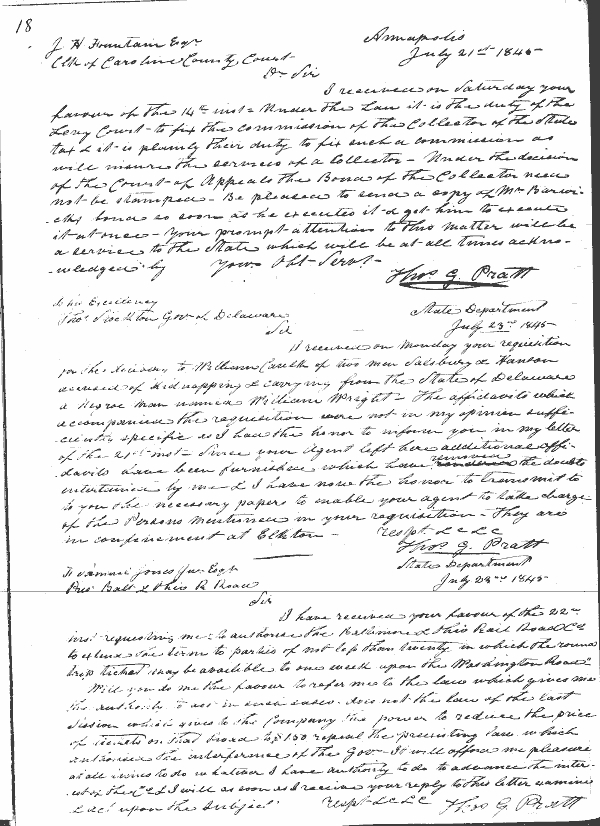 18
Annapolis
J H Fountain Esqr July 21st 1845
Clk of Caroline County Court
Dr Sir
I received on Saturday your
favour of the 14th inst - Under the Law it is the duty of the
Levy Court to fix the commission of the Collector of the State
tax & it is plainly their duty to fix such a commission as
will insure the services of a Collector - Under the decision
of the Court of Appeals the Bond of the Collector need
not be stamped - Be pleased to send a copy of Mr Barwi-
cks bond as soon as he executed it & get him to execute
it at once - Your prompt attention to this matter will be
a service to the State which will be at all times ackno-
wledged by Your Obt Servt -
Thos G. Pratt
To his Excellency State Department
Thos Stockton Gov of Delaware July 23rd 1845
Sir
I received on Monday your requisition
for the delivery to William Caulk of two men Salsbury & Hanson
accused of kidnapping & carrying from the State of Delaware
a Negroe man named William Wright - The affidavits which
accompanied the requisition were not in my opinion suffi-
ciently specific as I had the honor to inform you in my letter
of the 21st inst - Since your Agent left here additional affi-
davits have been furnished which have removed the doubts
entertained by me & I have now the honor to transmit to
to you the necessary papers to enable your agent to take charge
of the Persons mentioned in your requisition - They are
in confinement at Elkton - respt &c &c
Thos G. Pratt
To Samuel Jones Jur Esqr State Department
Pres Balt & Ohio R Road July 23rd 1845
Sir
I have received your favour of the 22nd
inst requesting me to authorise the Baltimore & Ohio Rail Road Co
to extend the term to parties of not less than twenty in which the round
trip ticket may be available to one week upon the Washington Road
Will you do me the favour to refer me to the law which gives me
the authority to act in such cases - does not the law of the last
Session which gives to the Company the power to reduce the price
of tickets on that road to $1 50 repeal the preexisting law which
authorised the interference of the Govr - It will afford me pleasure
at all times to do whatever I have authority to do to advance the inter-
est of the Co & I will as soon as I receive your reply to this letter examine
& act upon the subject respt &c &c Thos G Pratt